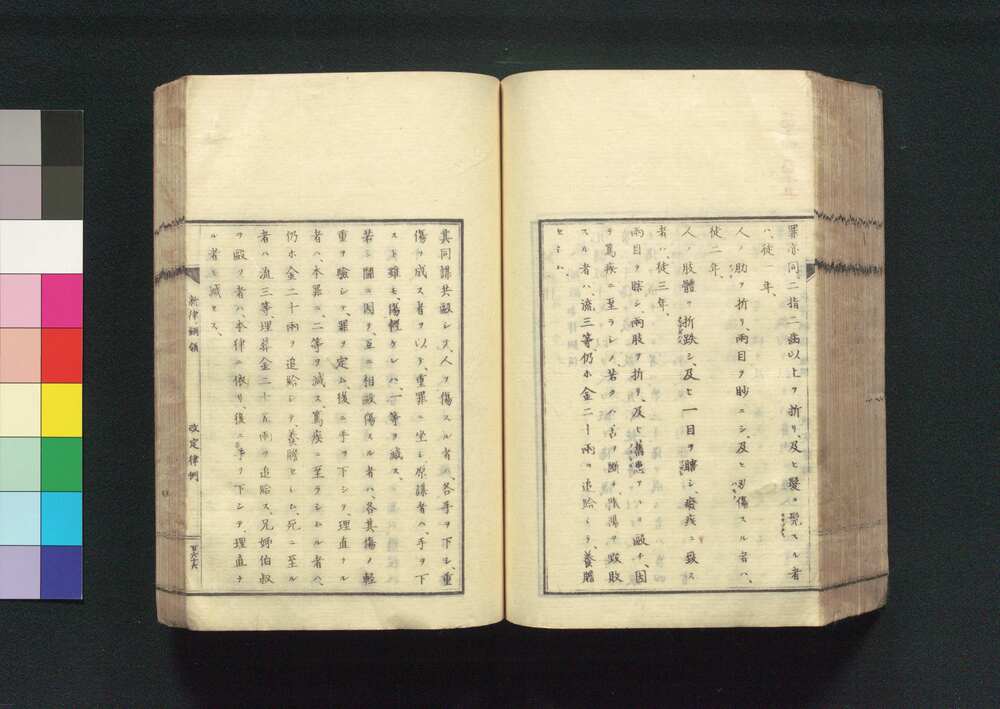 罪亦同二指二齒以上ヲ折リ、及ヒ髮ヲ髠スル者
ハ、徒一年、
人ノ肋ヲ折リ、兩目ヲ眇ニシ、及ヒ刃傷スル者ハ、
徒二年、
人ノ肢體ヲ折跌シ及ヒ一目ヲ瞎シ、癈疾ニ致ス
者ハ、徒三年、
兩目ヲ瞎シ兩肢ヲ折リ、及ヒ舊患アルヲ毆チ、因
テ篤疾ニ至ラシメ、若クハ舌ヲ斷、陰陽ヲ毀敗
スル者ハ、流三等仍ホ金二十兩ヲ追給シテ、養贍
セシム、
其同謀共毆シテ、人ヲ傷スル者ハ、各手ヲ下シ、重
傷ヲ成ス者ヲ以テ、重罪ニ坐シ、原謀者ハ、手ヲ下
スト雖モ、傷輕ケレハ、一等ヲ減ス、
若シ鬪ニ因テ、互ニ相毆傷スル者ハ、各其傷ノ輕
重ヲ驗シテ、罪ヲ定ム、後ニ手ヲ下シテ、理直ナル
者ハ、本罪ニ、二等ヲ減ス、篤疾ニ至ラシムル者ハ、
仍ホ金二十兩ヲ追給シテ、養贍セシム、死ニ至ル
者ハ流三等、埋葬金二十五兩ヲ追給ス、兄姉伯叔
ヲ毆ツ者ハ、本律ニ依リ、後ニ手ヲ下シテ、理直ナ
ル者モ減セス、
新律綱領 改定律例